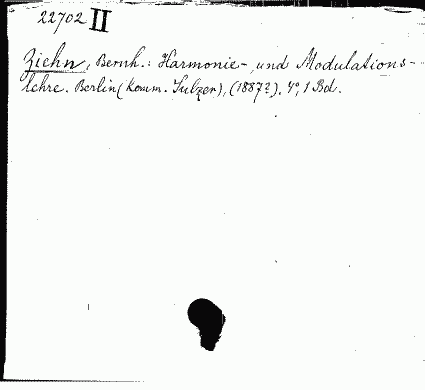 22702 II
Ziehn, Bernh.: Harmonie- und Modulations-
lehre. Berlin (Komm. Sulzer), (1887?). 4°, 1 Bd.